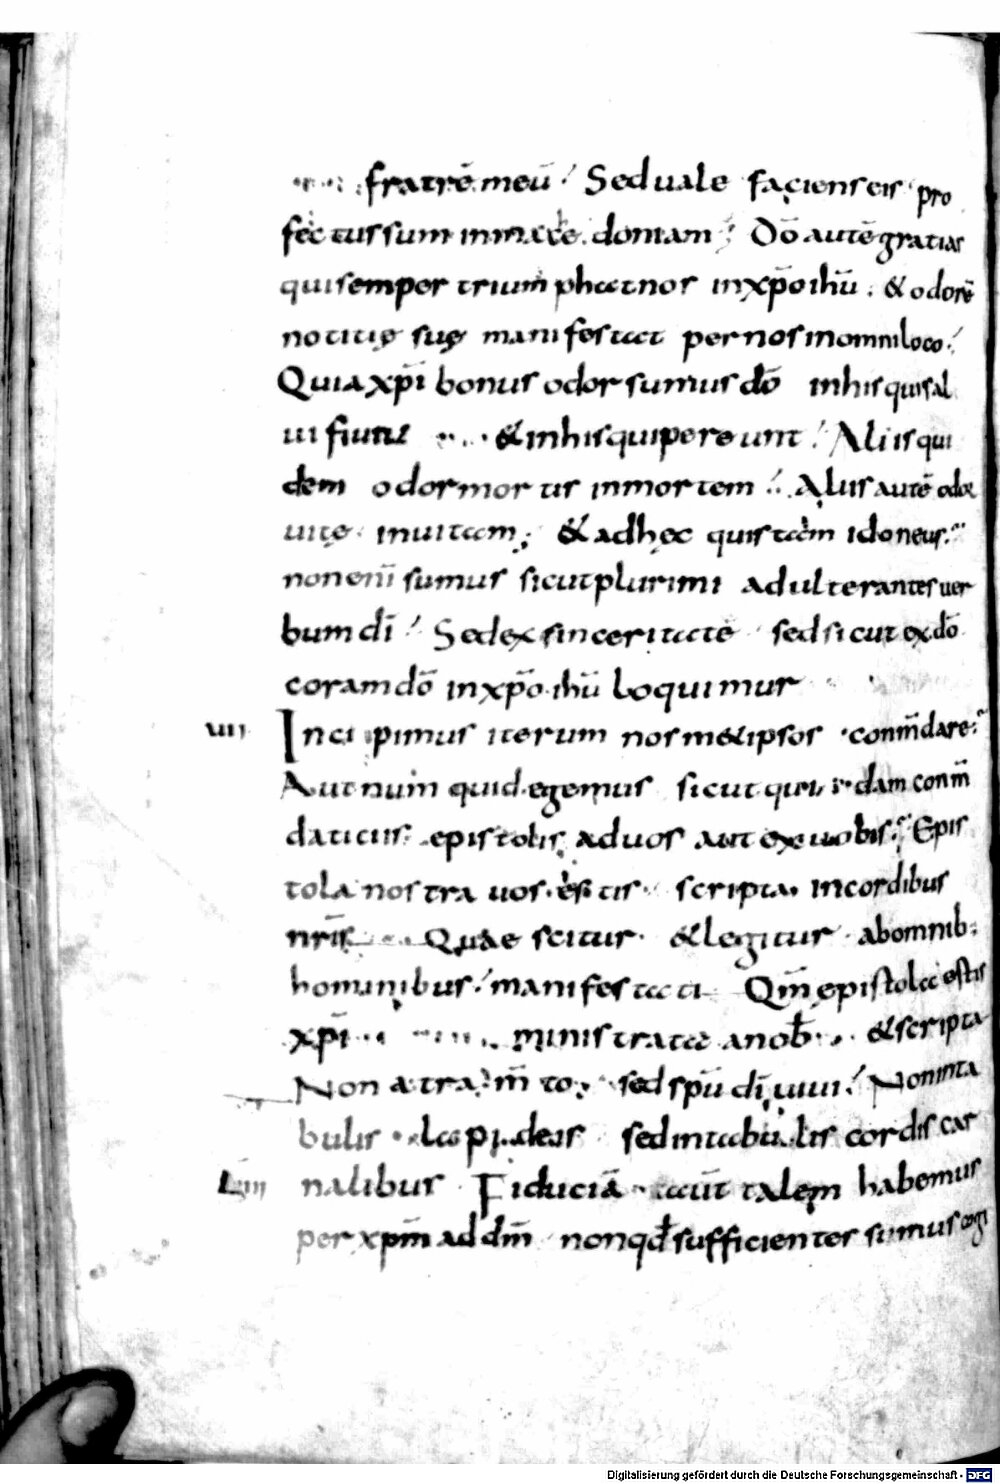 fratrē meū Sed uale faciens eis pro
fectus sum in macedoniam; Dō autē gratias
qui semper triumphat nos in xp̄o ihū. & odorē
notitię suę manifestat per nos in omni loco.
Quia xp̄i bonus odor sumus dō in his qui sal
ui fiunt & in his qui pereunt Aliis qui
dem odor mortis in mortem. Aliis autē odor
uitę in uitam; & ad hęc quis tam idoneus.
non enī sumus sicut plurimi adulterantes uer
bum dī Sed ex sinceritate sed sicut ex dō
coram dō in xp̄o ihū loquimur
VII Incipimus iterum nosm&ipsos conm̄dare.
Aut numquid egemus sicut quidam conm̄
daticiis epistolis ad uos aut ex uobis. Epis
tola nostra uos estis scripta in cordibus
nrīs Quae scitur & legitur ab omnib;
hominibus manifestati Qm̄ epistola estis
xp̄i ministrata a nob̄ & scripta
Non atram̄to sed spū dī uiui Non in ta
bulis lapideis sed in tabulis cordis car
nalibus Fiduciā aūt talem habemus
per xpm̄ ad dm̄ non qd̄ sufficientes simus cogi
Digitalisierung gefördert durch die Deutsche Forschungsgemeinschaft - DFG